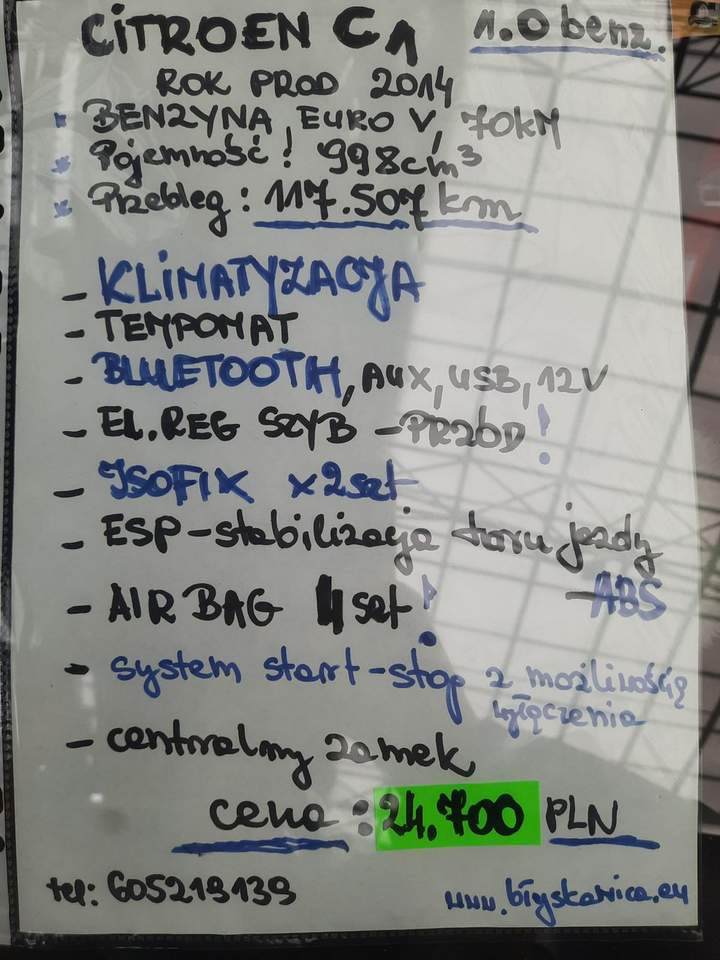 CITROEN C1 1.0 benz.
ROK PROD 2014
* BENZYNA, EURO V, 70KM
* Pojemność! 998cm³
* Przebieg: 117.507 km
- KLIMATYZACJA
- TEMPOMAT
- BLUETOOTH, AUX, USB, 12V
- EL.REG SZYB - PRZÓD!
- ISOFIX x2set
- ESP-stabilizacja toru jazdy
- AIR BAG 4 set! - ABS
- system start-stop z możliwością
wyłączenia
- centralny zamek
cena: 24.700 PLN
tel: 605219139 www.błyskawica.eu